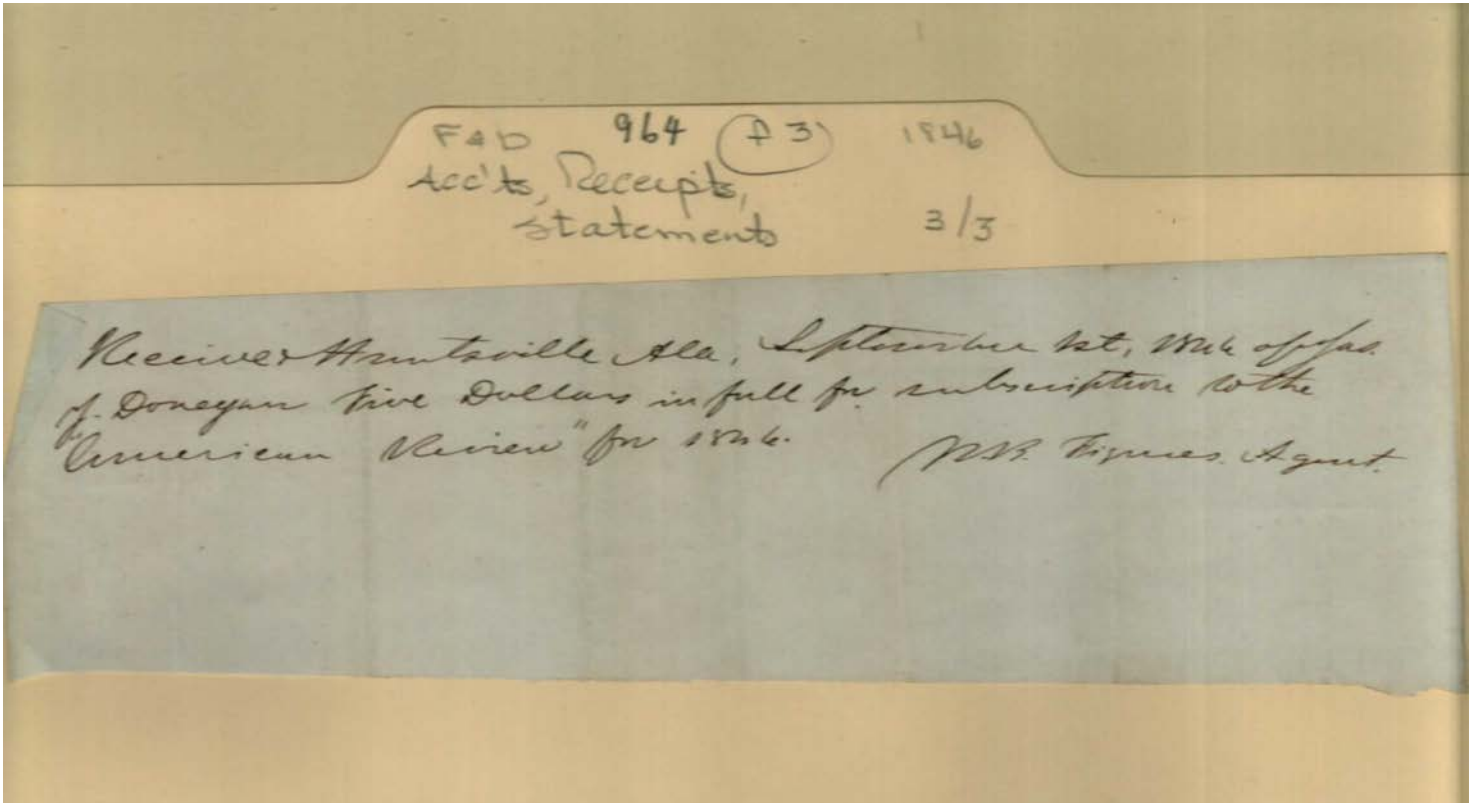 F & D 964 (P 3) 1846
Acc'ts, Receipts,
Statements 3/3
Received Huntsville Ala, September 1st, 1846 of Jas.
J. Donegan Five Dollars in full for subscription to the
"American Review" for 1846.
W.B. Figures. Agent.